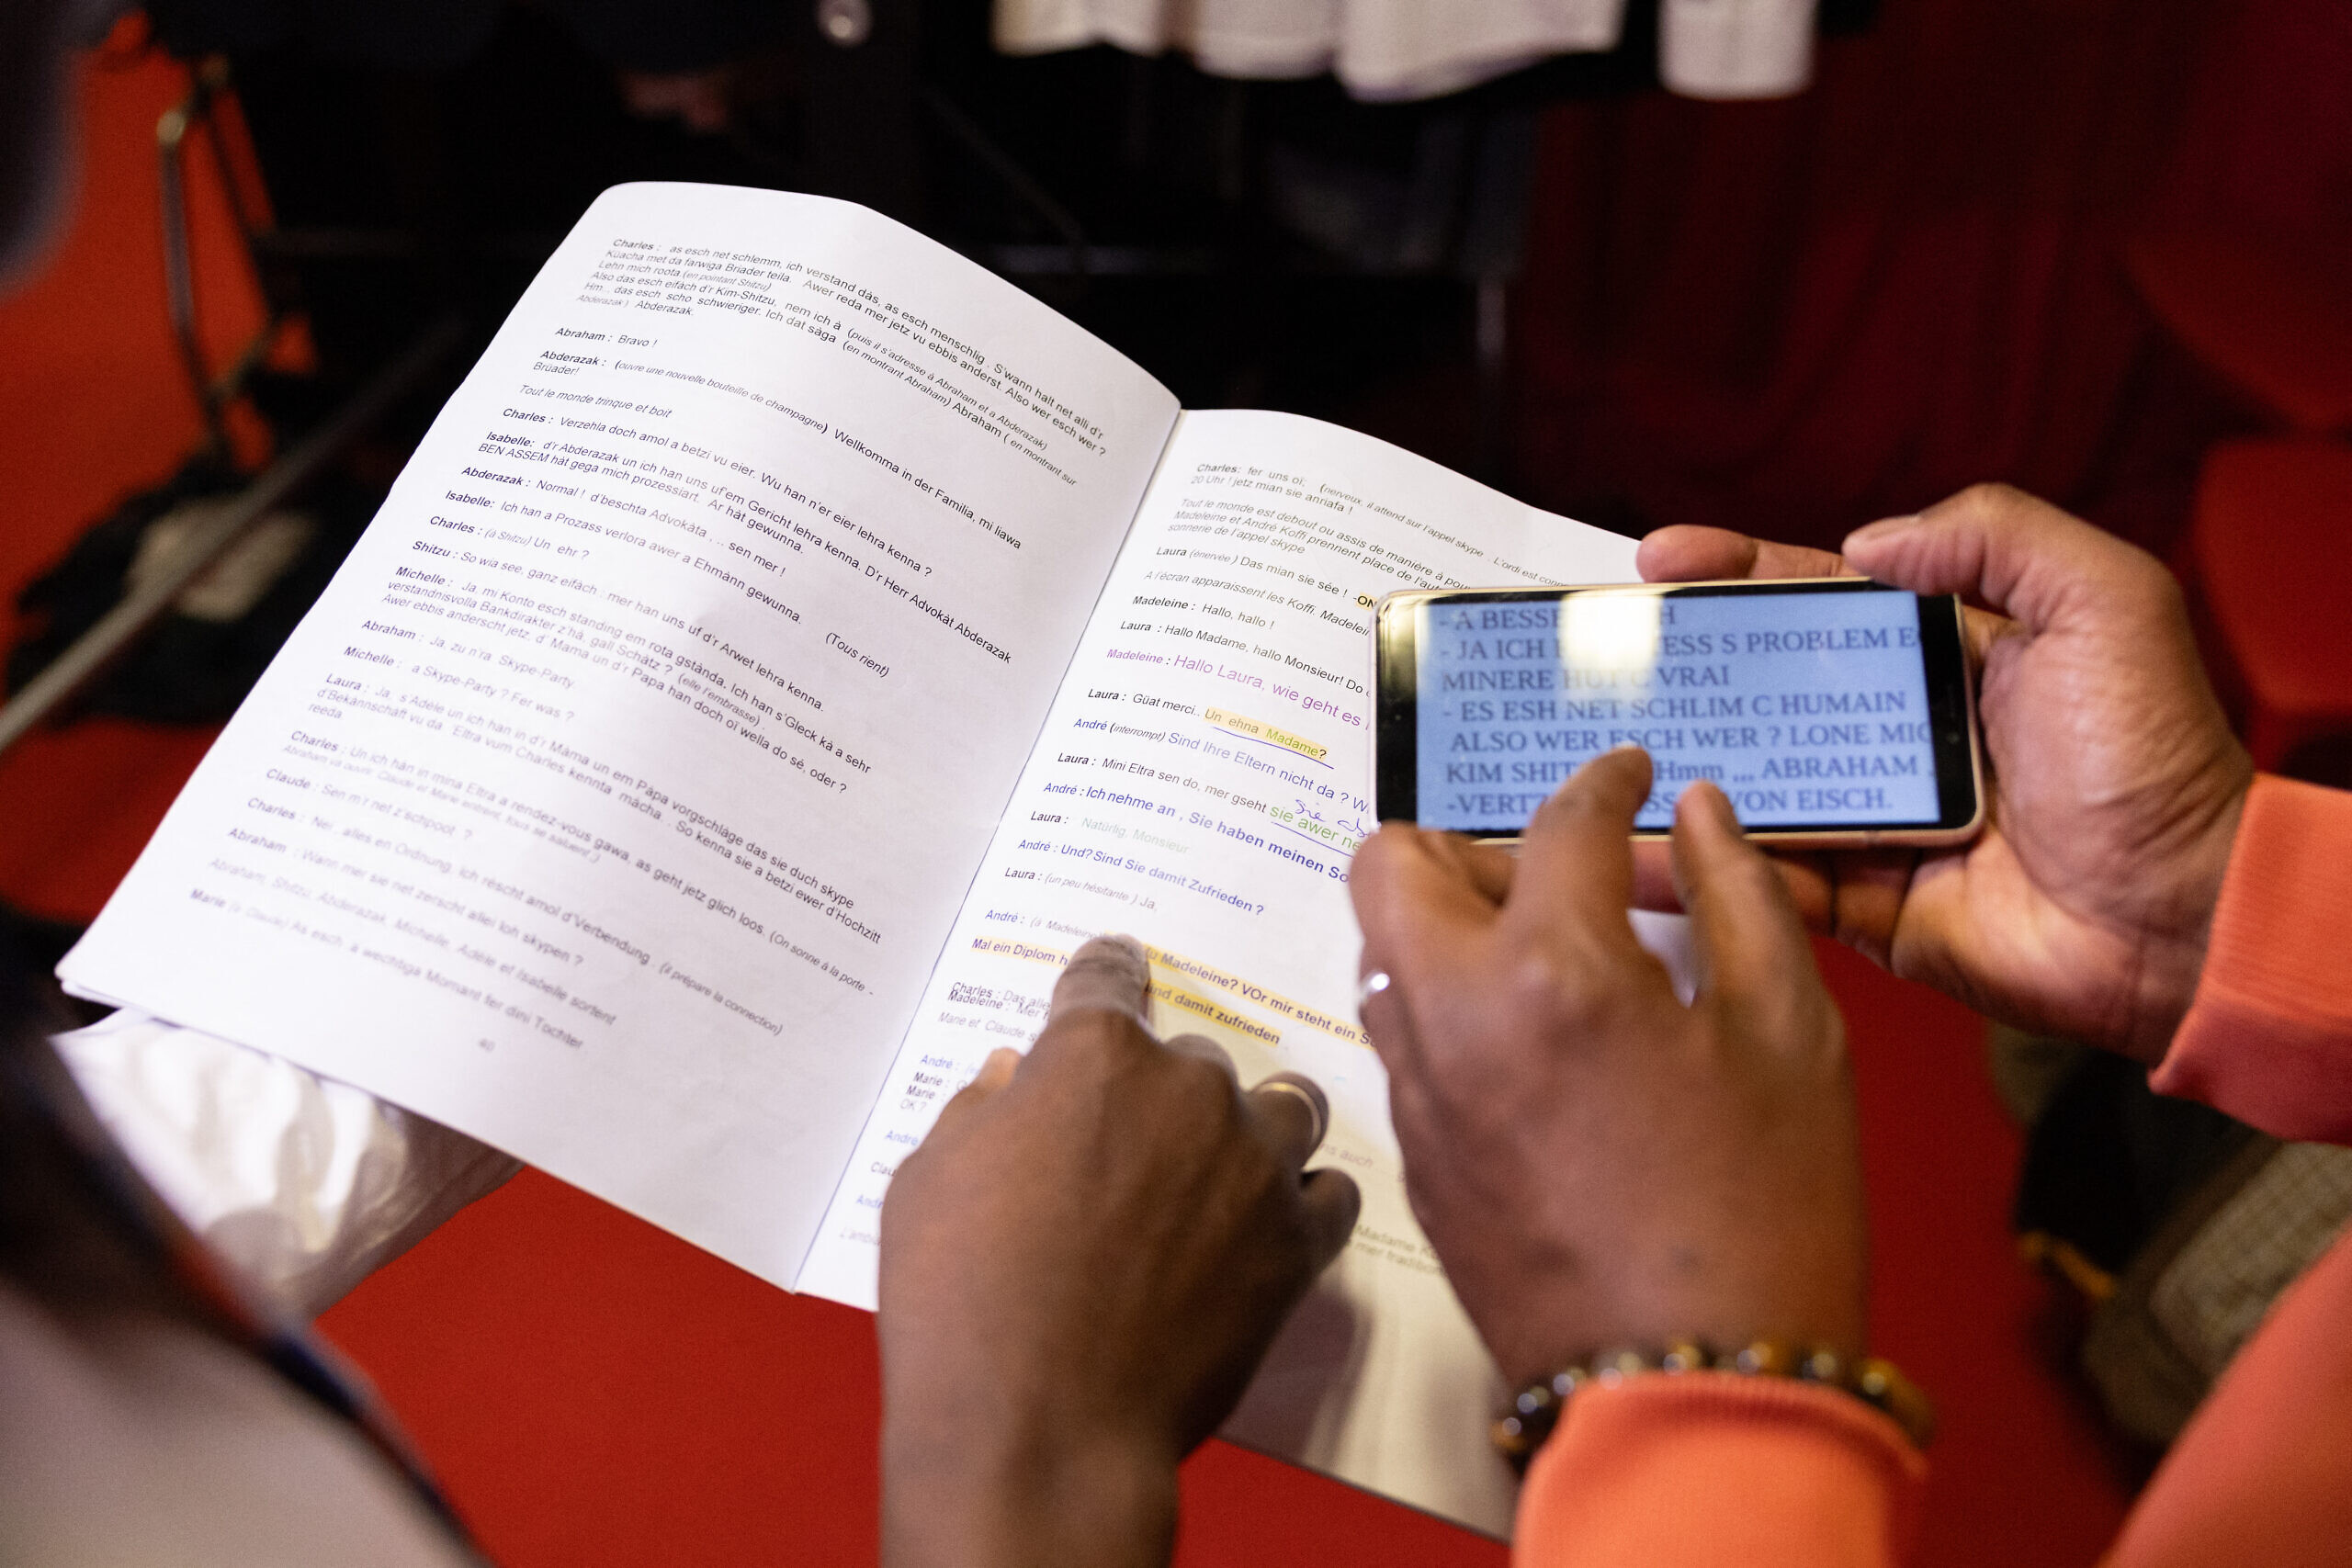 Charles : as esch net schlemm, ich verstand dàs, as esch menschlig . S'wann halt net alli d'r
Küacha met da farwiga Briader teila. Awer reda mer jetz vu ebbis anderst. Also wer esch wer ?
Lehn mich roota.(en pointant Shitzu)
Also das esch eifàch d'r Kim-Shitzu, nem ich à (puis il s'adresse à Abraham et a Abderazak)
Hm... das esch scho schwieriger. Ich dat sàga (en montrant Abraham) Abraham ( en montrant sur
Abderazak ) Abderazak.
Abraham : Bravo !
Abderazak : (ouvre une nouvelle bouteille de champagne) Wellkomma in der Familia, mi liawa
Brüader!
Tout le monde trinque et boit
Charles : Verzehla doch amol a betzi vu eier. Wu han n'er eier lehra kenna ?
Isabelle: d'r Abderazak un ich han uns uf'em Gericht lehra kenna. D'r Herr Advokàt Abderazak
BEN ASSEM hàt gega mich prozessiart. Ar hàt gewunna.
Abderazak : Normal ! d'beschta Advokàta ... sen mer !
Isabelle: Ich han a Prozass verlora awer a Ehmànn gewunna. (Tous rient)
Charles : (à Shitzu) Un ehr ?
Shitzu : So wia see, ganz eifàch : mer han uns uf d'r Arwet lehra kenna.
Michelle : Ja, mi Konto esch standing em rota gstànda. Ich han s'Gleck kà a sehr
verstandnisvolla Bankdirakter z'hà, gall Schàtz ? (elle l'embrasse)
Awer ebbis anderscht jetz. d' Mama un d'r Pàpa han doch oï wella do sé, oder ?
Abraham : Ja, zu n'ra Skype-Party.
Michelle : a Skype-Party ? Fer was ?
Laura : Ja, s'Adèle un ich han in d'r Màma un em Pàpa vorgschlàge das sie duch skype
d'Bekànnschàft vu da 'Eltra vum Charles kennta màcha . So kenna sie a betzi ewer d'Hochzitt
reeda
Charles : Un ich hàn in mina Eltra a rendez-vous gawa, as geht jetz glich loos. (On sonne à la porte -
Abraham va ouvrir. Claude et Marie entrent, tous se saluent.)
Claude : Sen m'r net z'schpoot ?
Charles : Nei , alles en Ordnung. Ich rèscht amol d'Verbendung . (il prépare la connection)
Abraham : Wann mer sie net zerscht allei loh skypen ?
Abraham, Shitzu, Abderazak, Michelle, Adèle et Isabelle sortent
Marie (à Claude) As esch a wechtiga Momant fer dini Tochter
40
Charles: fer uns oï; (nerveux, il attend sur l'appel skype . L'ordi est
20 Uhr ! jetz mian sie anriafa !
Tout le monde est debout ou assis de manière à
Madeleine et André Koffi prennent place de
sonnerie de l'appel skype
Laura (énervée ) Das mian sie sée ! -ON
A l'écran apparaissent les Koffi.
Madeleine : Hallo, hallo !
Laura : Hallo Madame, hallo Monsieur!
Madeleine : Hallo Laura, wie geht es
Laura : Güat merci.. Un ehna Madame?
André (interrompt) Sind Ihre Eltern nicht da ?
Laura : Mini Eltra sen do, mer gseht sie awer
Sie
André : Ich nehme an , Sie haben meinen
Laura : Natürlig, Monsieur
André : Und? Sind Sie damit Zufrieden ?
Laura : (un peu hésitante ) Ja.
André : (à Madeleine Madeleine? VOr mir steht ein
Mal ein Diplom damit zufrieden
Charles : Das
Madeleine : Mer
Marie et Claude
André :
Marie :
Marie :
OK ?
André
auch ...
Madame
- A BESSE
- JA ICH S PROBLEM
MINERE HUT C VRAI
- ES ESH NET SCHLIM C HUMAIN
ALSO WER ESCH WER ? LONE
KIM Hmm ,,, ABRAHAM
VON EISCH.